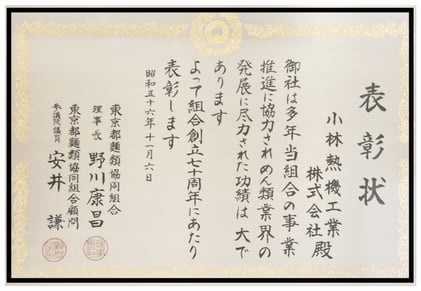 表彰状
小林熱機工業
株式会社殿
御社は多年当組合の事業
推進に協力されめん類業界の
発展に尽力された功績は大で
あります
よって組合創立七十周年にあたり
表彰します
昭和五十六年十一月六日
東京都麺類協同組合
理事長 野川康昌
東京都麺類協同組合顧問
参議院議員 安井 謙